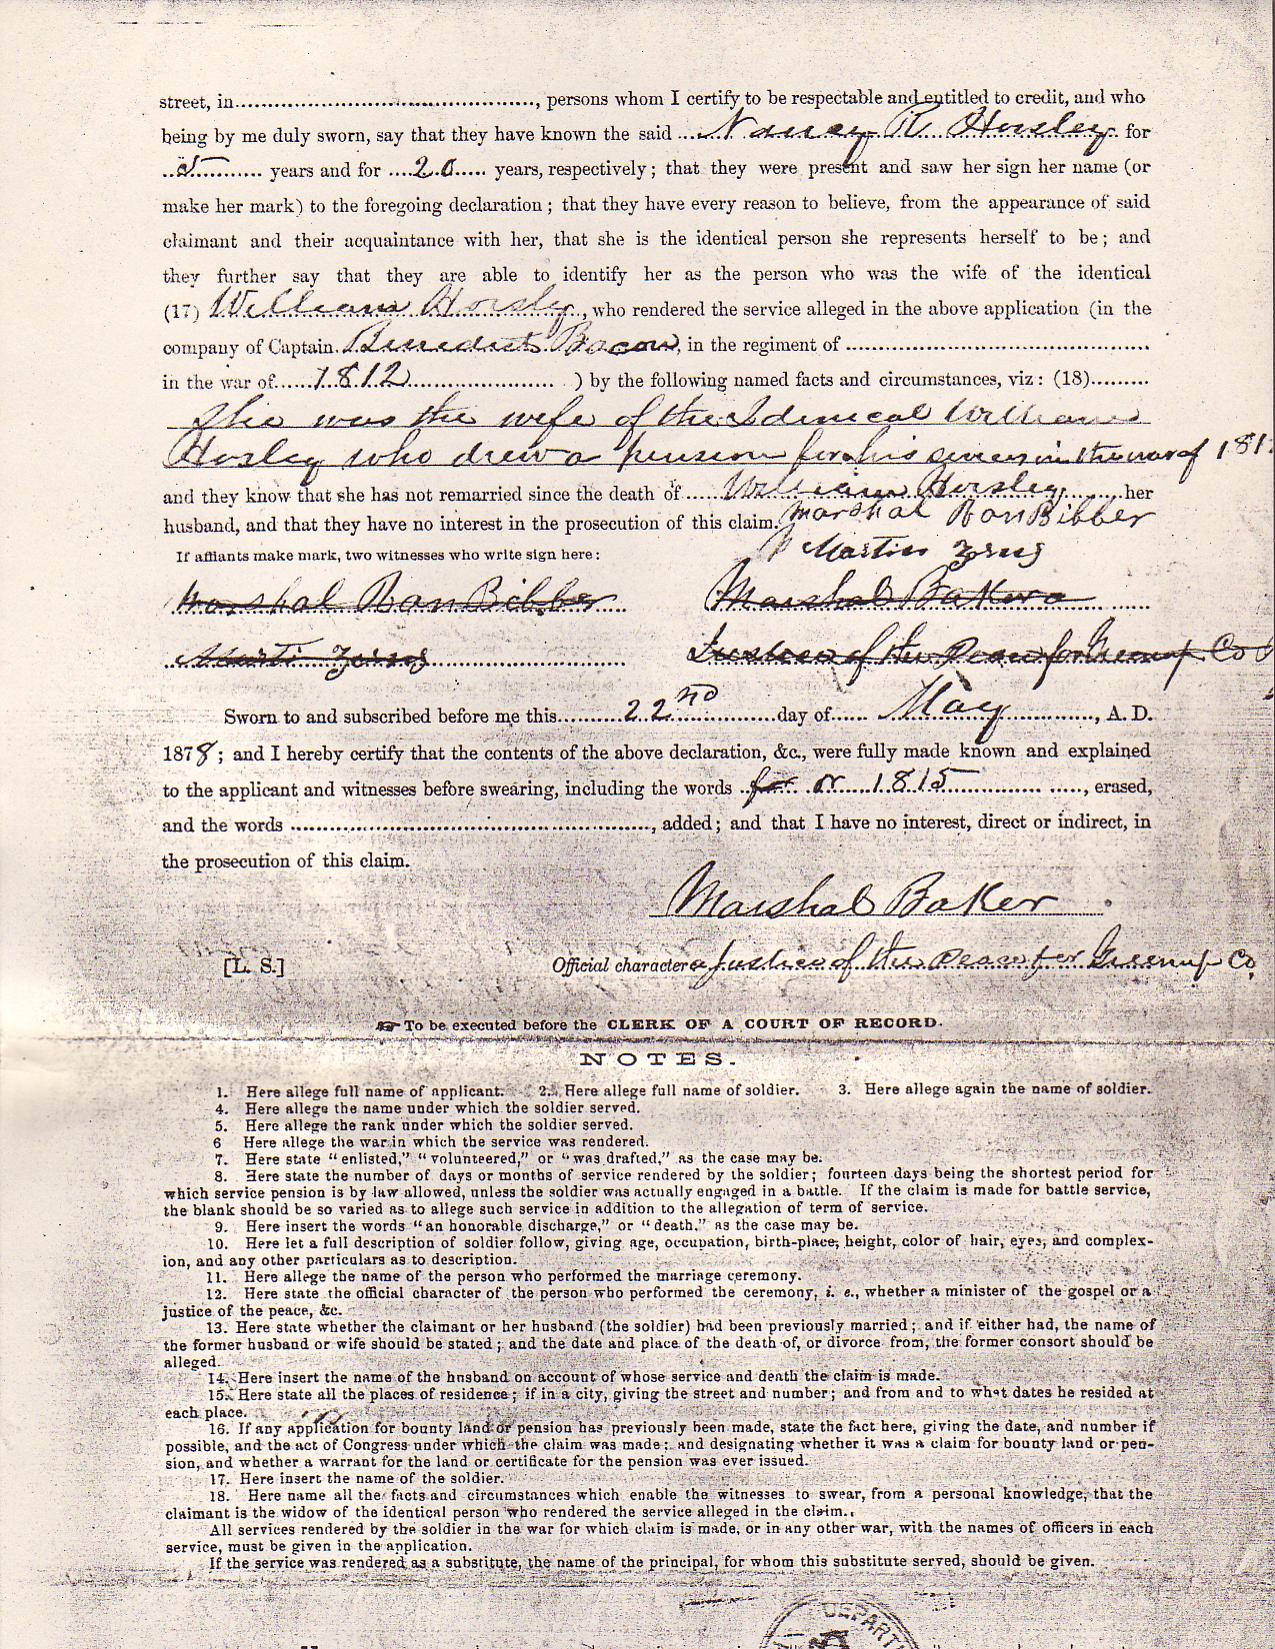 street, in........................................, persons whom I certify to be respectable and entitled to credit, and who
being by me duly sworn, say that they have known the said Nancy R Horsley for
5 years and for 20 years, respectively; that they were present and saw her sign her name (or
make her mark) to the foregoing declaration; that they have every reason to believe, from the appearance of said
claimant and their acquaintance with her, that she is the identical person she represents herself to be; and
they further say that they are able to identify her as the person who was the wife of the identical
(17) William Horsley, who rendered the service alleged in the above application (in the
company of Captain Benedict Bacon, in the regiment of ........................................
in the war of 1812 ) by the following named facts and circumstances, viz: (18).........
She was the wife of the Idenical William
Horsley who drew a pension for his servces in the war of 181
and they know that she has not remarried since the death of William Horsley her
husband, and that they have no interest in the prosecution of this claim. Marshal VanBibber
If affiants make mark, two witnesses who write sign here: Martin Zorns
Marshal VanBibber Marshal Baker
Marti Zorns Justice of the Peace for Greenup Co
Sworn to and subscribed before me this 22nd day of May, A. D.
1878; and I hereby certify that the contents of the above declaration, &c., were fully made known and explained
to the applicant and witnesses before swearing, including the words for or 1815, erased,
and the words ........................................, added; and that I have no interest, direct or indirect, in
the prosecution of this claim.
Marshal Baker
[L. S.] Official character a Justice of the Peace for Greenup Co,
☞ To be executed before the CLERK OF A COURT OF RECORD.
NOTES.
1. Here allege full name of applicant. 2. Here allege full name of soldier. 3. Here allege again the name of soldier.
4. Here allege the name under which the soldier served.
5. Here allege the rank under which the soldier served.
6 Here allege the war in which the service was rendered.
7. Here state "enlisted," "volunteered," or "was drafted," as the case may be.
8. Here state the number of days or months of service rendered by the soldier; fourteen days being the shortest period for
which service pension is by law allowed, unless the soldier was actually engaged in a battle. If the claim is made for battle service,
the blank should be so varied as to allege such service in addition to the allegation of term of service.
9. Here insert the words "an honorable discharge," or "death," as the case may be.
10. Here let a full description of soldier follow, giving age, occupation, birth-place, height, color of hair, eyes, and complex-
ion, and any other particulars as to description.
11. Here allege the name of the person who performed the marriage ceremony.
12. Here state the official character of the person who performed the ceremony, i. e., whether a minister of the gospel or a
justice of the peace, &c.
13. Here state whether the claimant or her husband (the soldier) had been previously married; and if either had, the name of
the former husband or wife should be stated; and the date and place of the death of, or divorce from, the former consort should be
alleged.
14. Here insert the name of the husband on account of whose service and death the claim is made.
15. Here state all the places of residence; if in a city, giving the street and number; and from and to what dates he resided at
each place.
16. If any application for bounty land or pension has previously been made, state the fact here, giving the date, and number if
possible, and the act of Congress under which the claim was made; and designating whether it was a claim for bounty land or pen-
sion, and whether a warrant for the land or certificate for the pension was ever issued.
17. Here insert the name of the soldier.
18. Here name all the facts and circumstances which enable the witnesses to swear, from a personal knowledge, that the
claimant is the widow of the identical person who rendered the service alleged in the claim.
All services rendered by the soldier in the war for which claim is made, or in any other war, with the names of officers in each
service, must be given in the application.
If the service was rendered as a substitute, the name of the principal, for whom this substitute served, should be given.